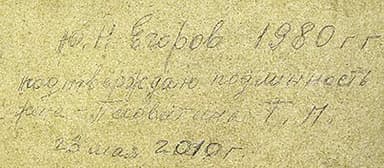 Ю. Н Егоров 1980 г г
подтверждаю подлинность
Т. М.
23 мая 2010 г.